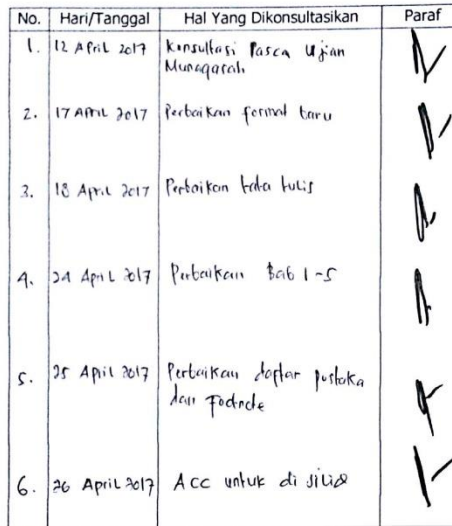 No. Hari/Tanggal Hal Yang Dikonsultasikan Paraf
1. 12 April 2017 Konsultasi Pasca Ujian
Munaqasah
2. 17 April 2017 Perbaikan format baru
3. 18 April 2017 Perbaikan tata tulis
4. 24 April 2017 Perbaikan Bab 1-5
5. 25 April 2017 Perbaikan daftar pustaka
dan footnote
6. 26 April 2017 ACC untuk di jilid